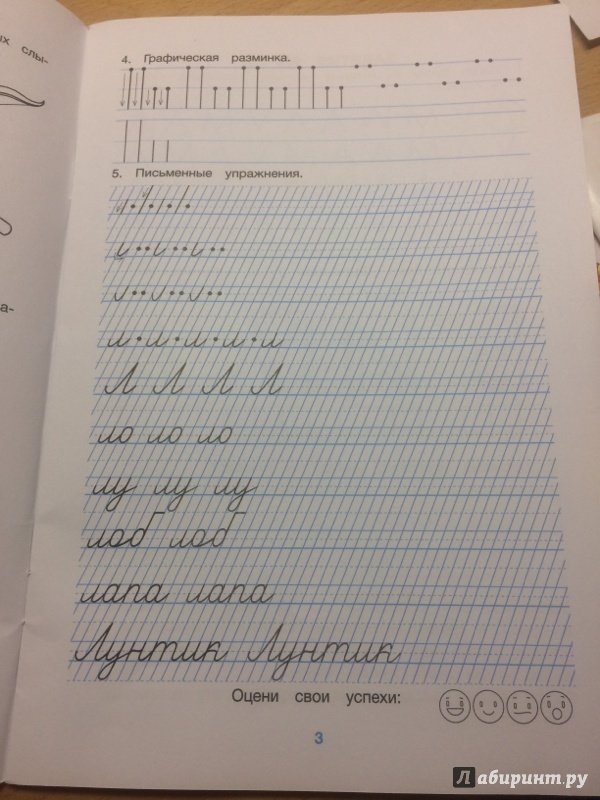 ых слы-
а-
4. Графическая разминка.
5. Письменные упражнения.
л л л л л
Л Л Л Л
ло ло ло
лу лу лу
лоб лоб
лапа лапа
Лунтик Лунтик
Оцени свои успехи:
3
Лабиринт.ру